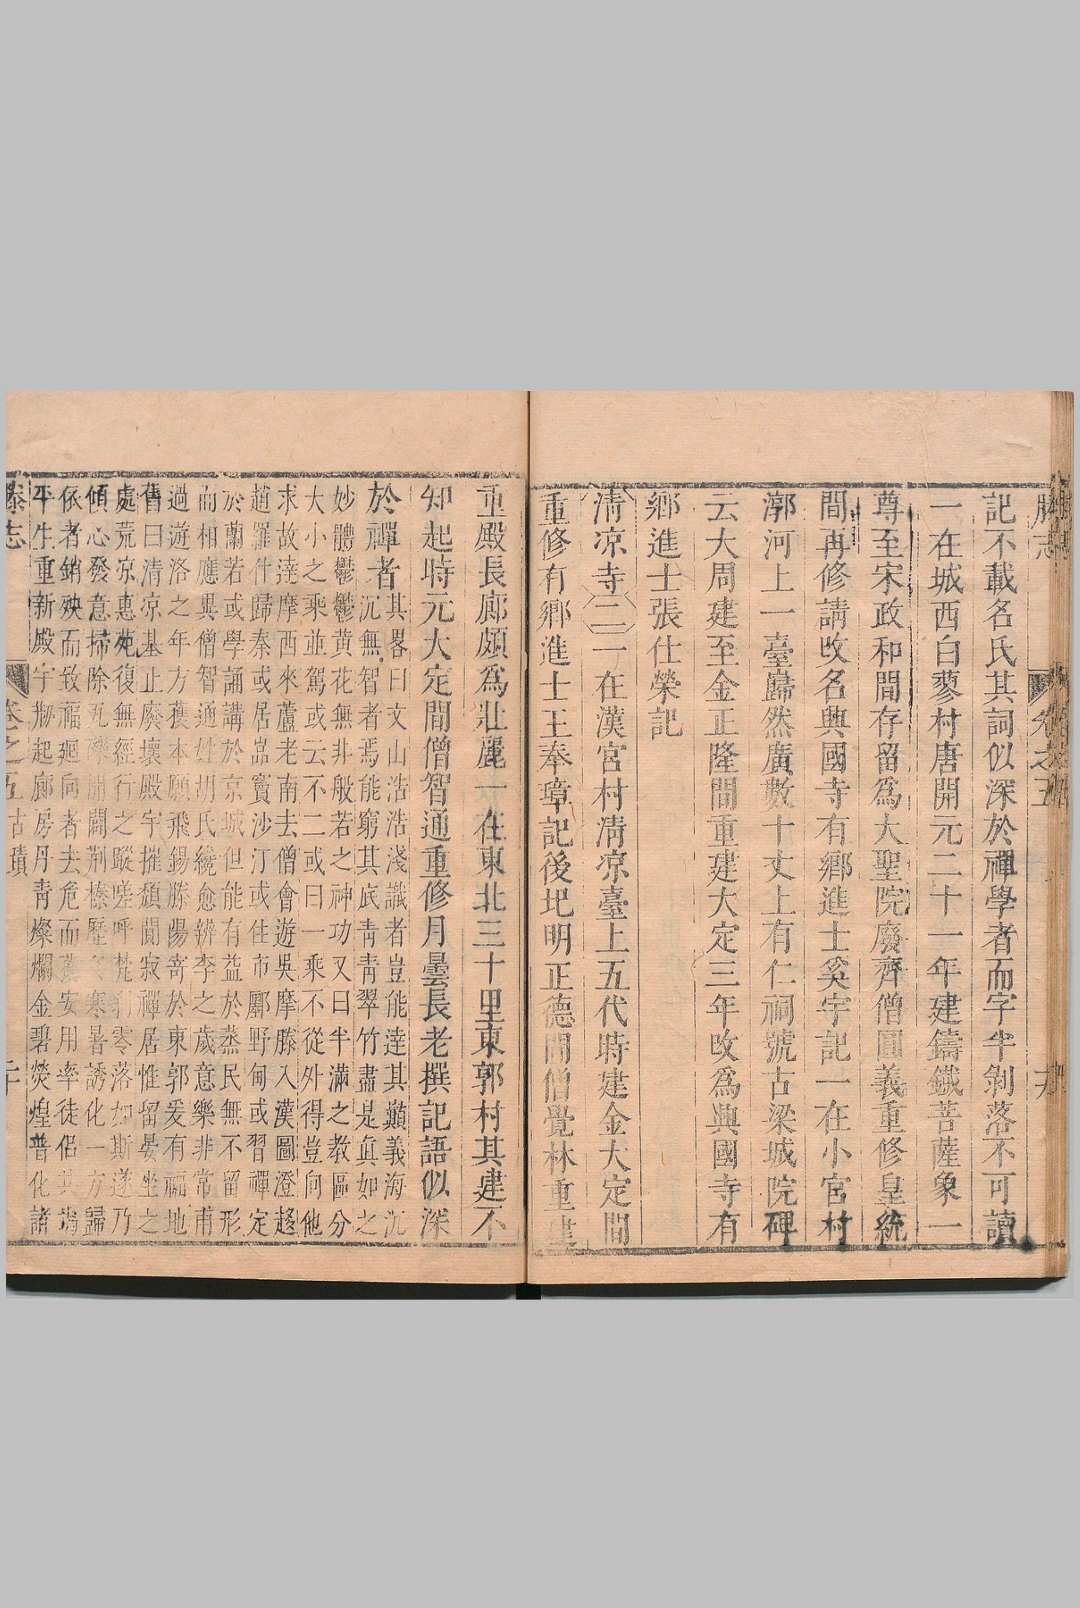 滕志　卷之五　十九
記不載名氏其詞似深於禪學者而字半剝落不可讀
一在城西白蓼村唐開元二十一年建鑄鐵菩薩象一
尊至宋政和間存留爲大聖院廢齊僧圓義重修皇統
間再修請改名興國寺有鄉進士奚字記一在小宮村
漷河上一臺巋然廣數十丈上有仁祠號古梁城院碑
云大周建至金正隆間重建大定三年改爲興國寺有
鄉進士張仕榮記
清凉寺二一在漢宮村清凉臺上五代時建金大定間
重修有鄉進士王奉璋記後圯明正德間僧覺林重建
重殿長廊頗爲壯麗一在東北三十里東郭村其建不
知起時元大定間僧智通重修月曇長老撰記語似深
於禪者其畧曰文山浩浩淺識者豈能達其巔義海沉
沉無智者焉能窮其底靑靑翠竹盡是眞如之
妙體鬱鬱黄花無非般若之神功又曰半滿之教區分
大小之乘並駕或云不二或曰一乘不從外得豈向他
求故達摩西來蘆老南去僧會遊吳摩騰入漢圖澄趍
趙羅什歸秦或居嵓竇沙汀或住市鄽野甸或習禪定
於蘭若或學誦講於京城但能有益於蒸民無不留形
而相應與僧智通姓胡氏繞愈辨李之歲意樂非常甫
過遊洛之年方穫本願飛錫滕陽寄於東郭爰有福地
舊曰清凉基止廢壞殿宇摧頽闃寂禪居惟留晏坐之
處荒凉惠苑復無經行之蹤嗟呼梵刹零落如斯遂乃
傾心發意掃除瓦礫開闢荆榛歷冬寒暑誘化一方歸
依者銷殃而致福廻向者去危而獲安用率徒侣共為
平生重新殿宇剏起廊房丹靑燦爛金碧熒煌普化諸
滕志　卷之五古蹟　二十